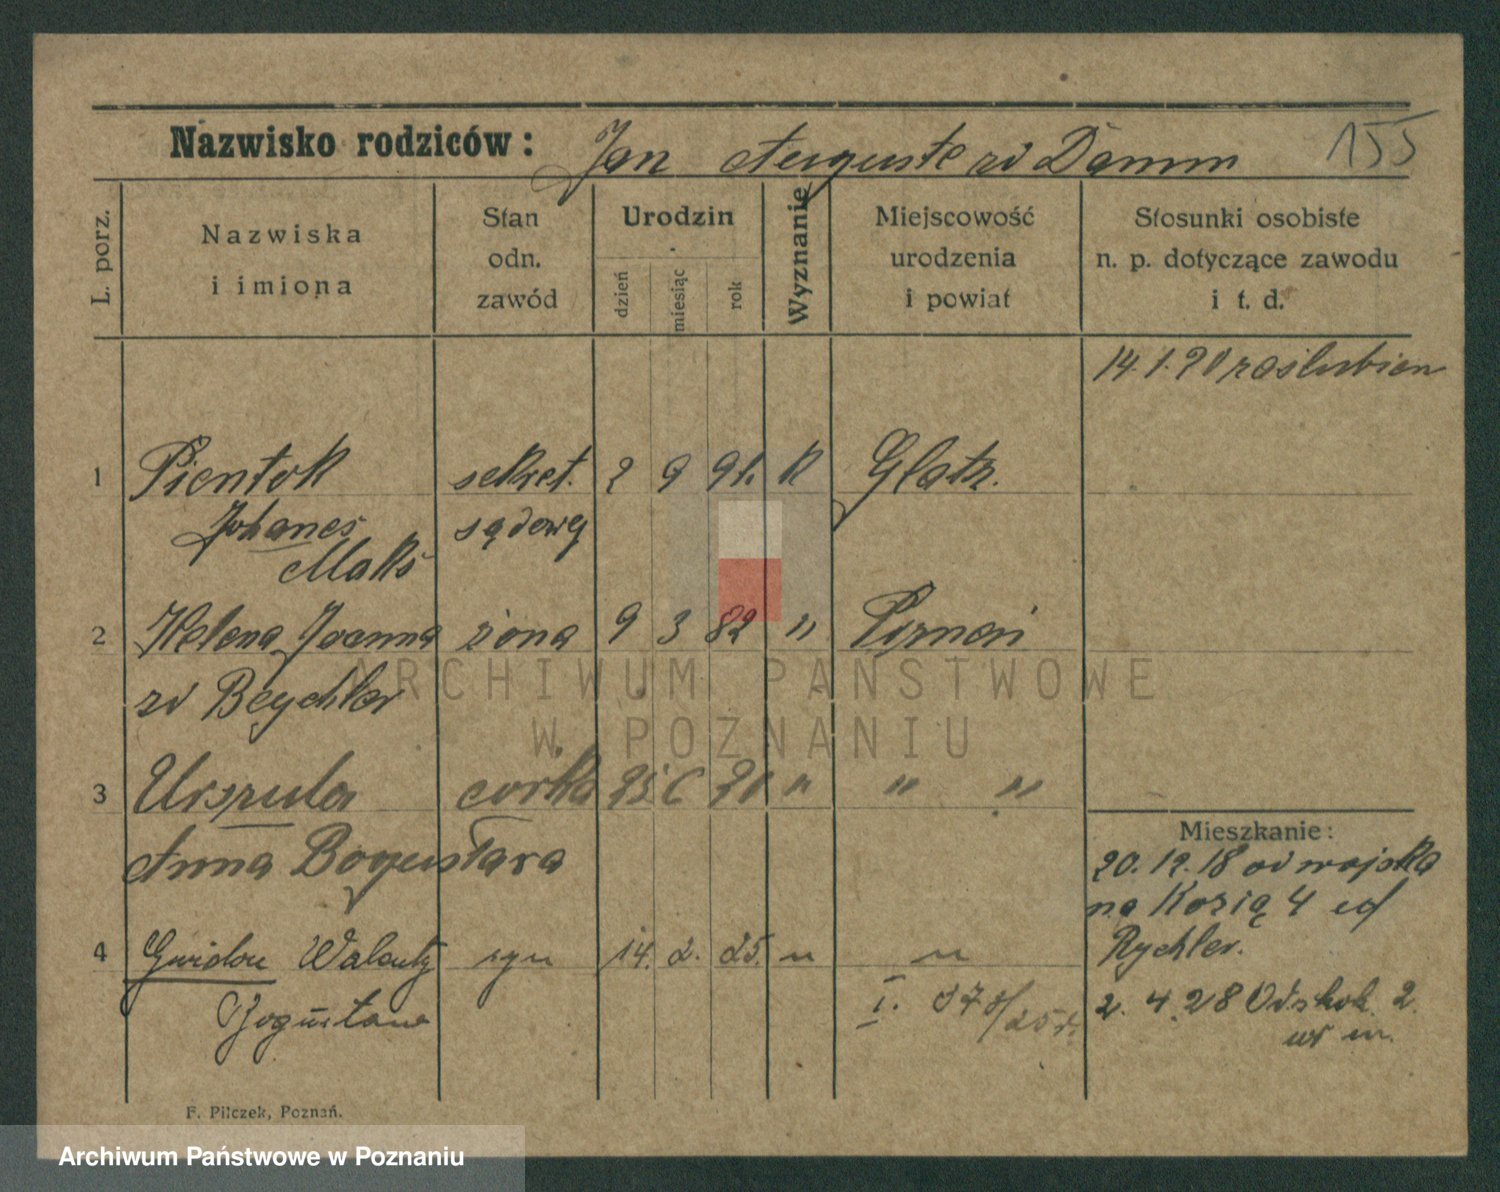 Nazwisko rodziców: Jan Auguste zd Damm 155
L. porz.
Nazwiska
i imiona
Stan
odn.
zawód
Urodzin
dzień
miesiąc
rok
Wyznanie
Miejscowość
urodzenia
i powiat
Stosunki osobiste
n. p. dotyczące zawodu
i t. d.
14.1.20 zaślubien
1 Pientok sekret. 2 9 91. k Glatz.
Johanes sądowy
Maks
2 Helena Joanna żona 9 3 82 " Poznań
zd Beychler
3 Urszula corka 25 6 20 " " "
Anna Bogusława
4 Gwidon Walenty syn 14. 2. 25. " "
Bogusława
I. 378/25r.
Mieszkanie:
20.12.18 od wojska
na Kozią 4 od
Rychler.
2.4.28 Odskok. 2.
w m.
F. Pilczek, Poznań.
ARCHIWUM PAŃSTWOWE
W POZNANIU
Archiwum Państwowe w Poznaniu